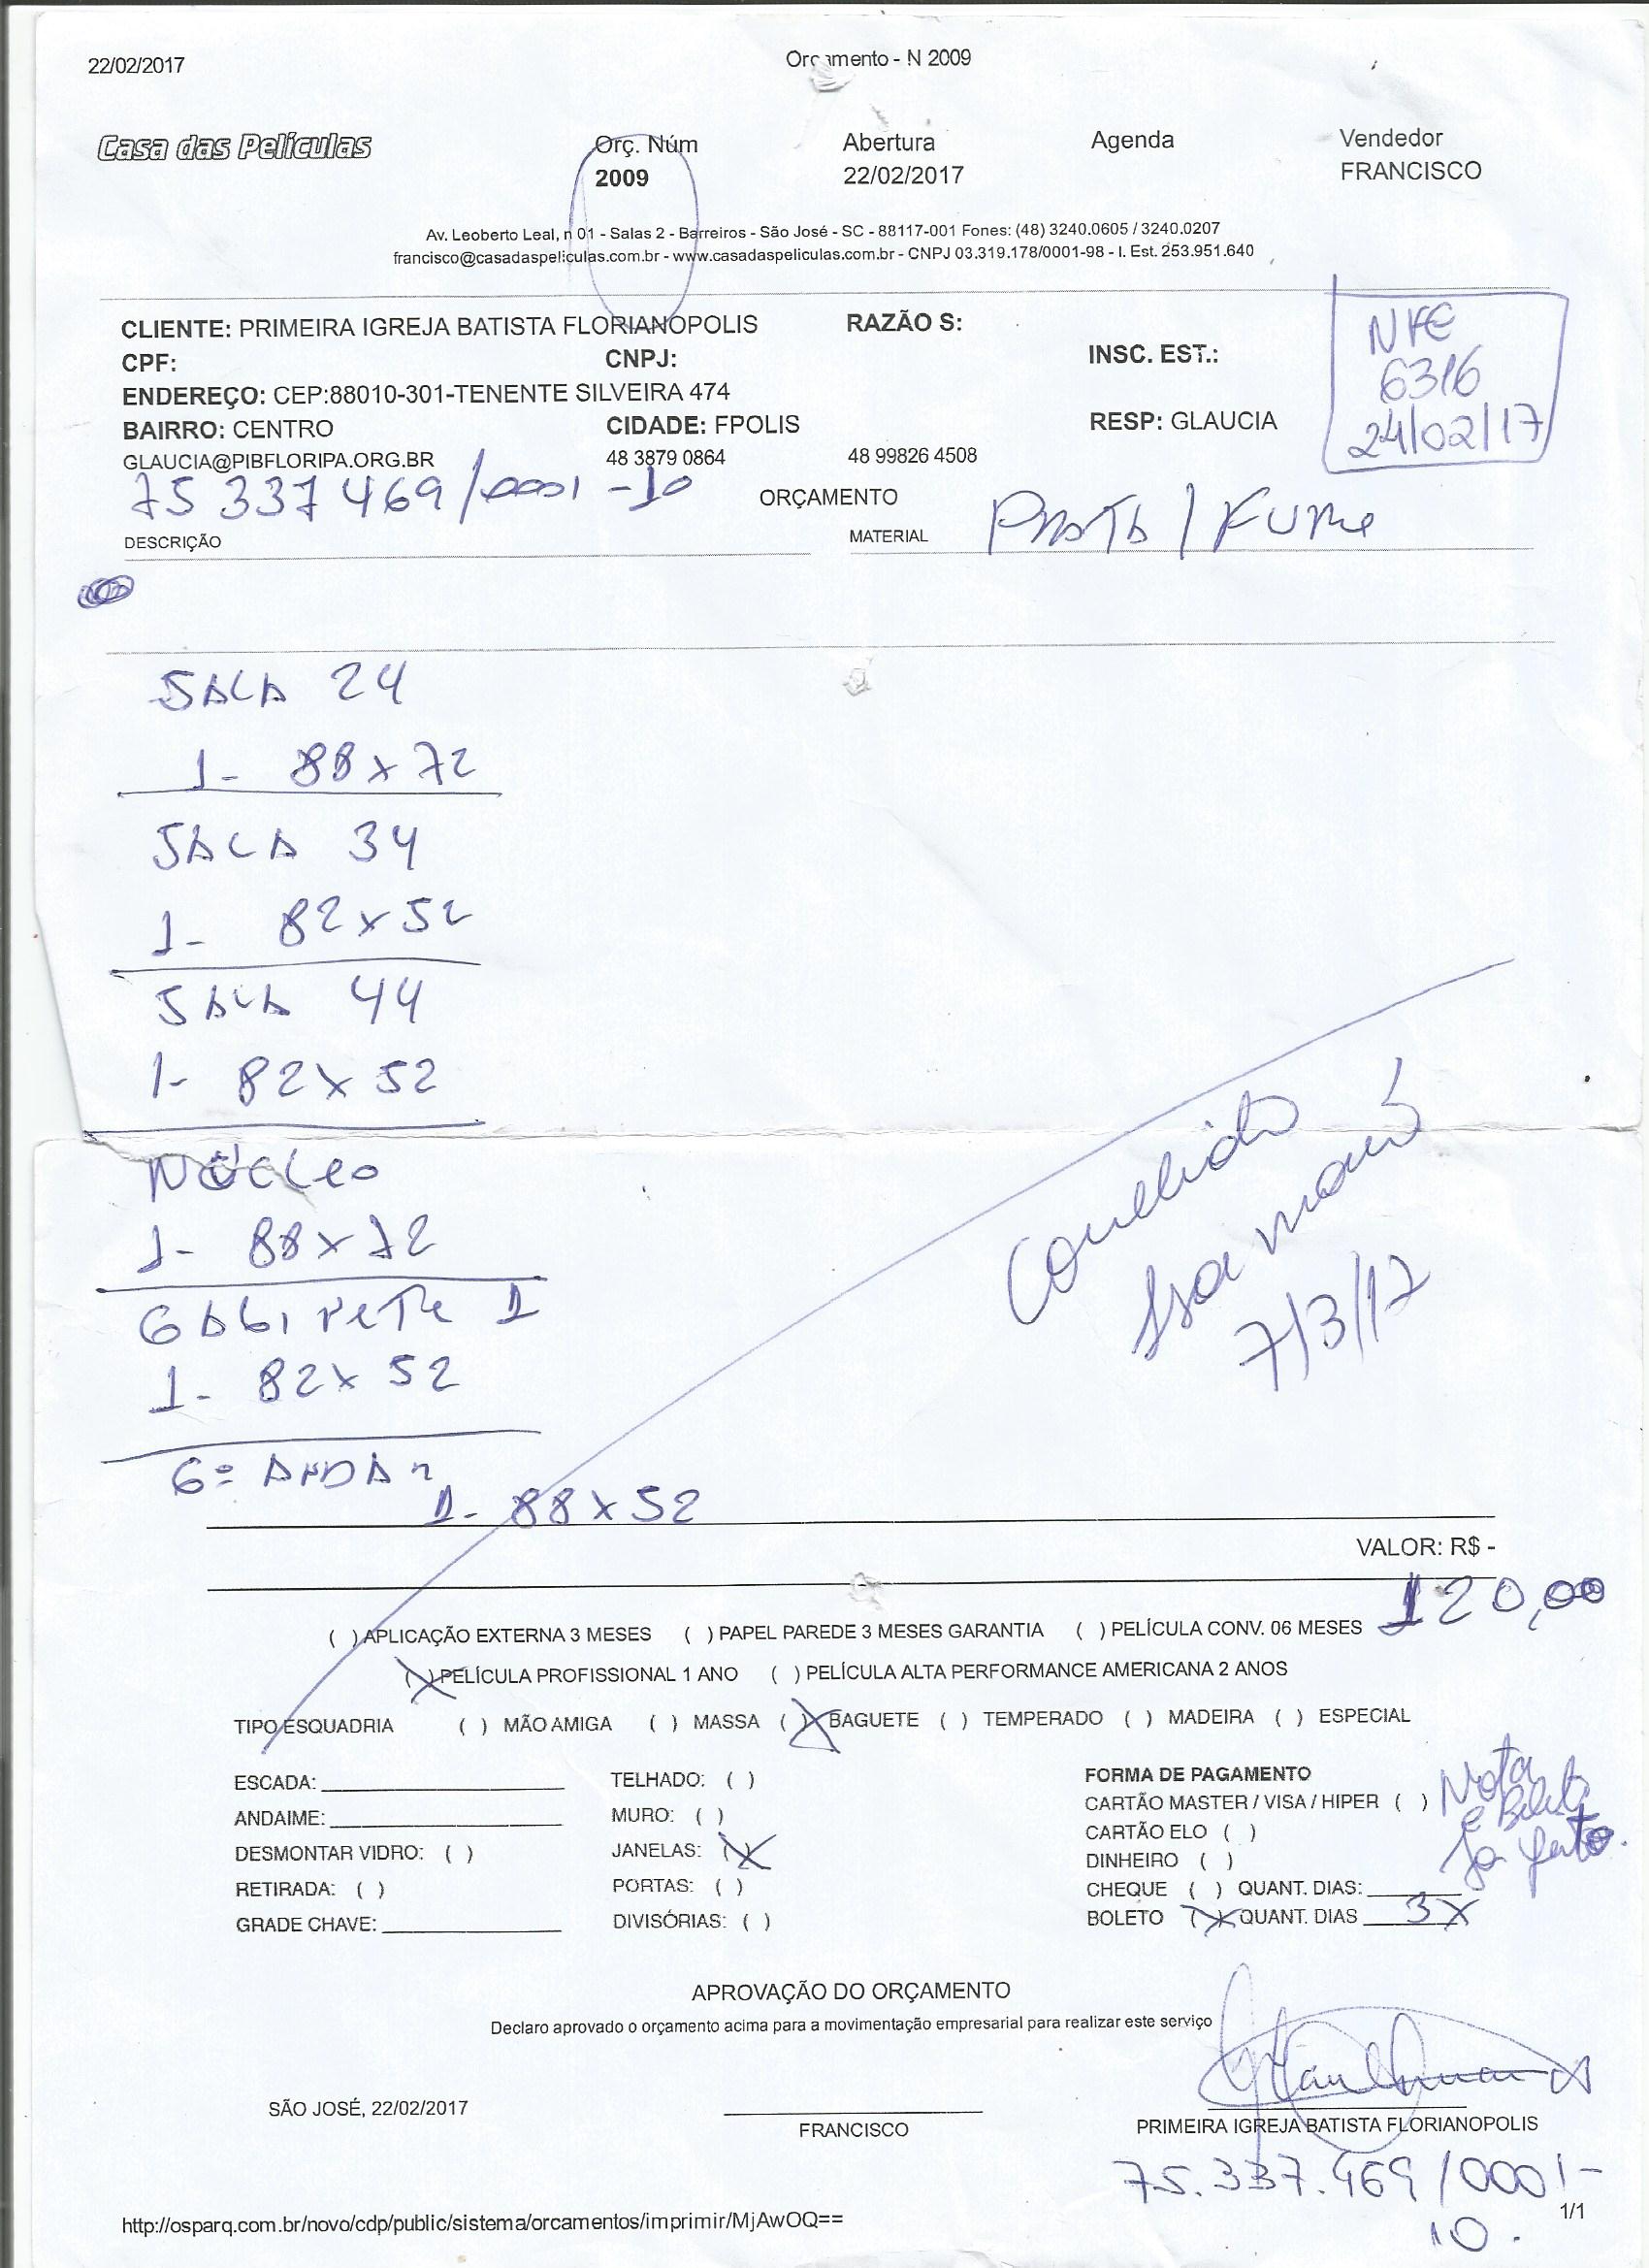 22/02/2017 Orçamento - N 2009
Casa das Películas Orç. Núm Abertura Agenda Vendedor
2009 22/02/2017 FRANCISCO
Av. Leoberto Leal, n 01 - Salas 2 - Barreiros - São José - SC - 88117-001 Fones: (48) 3240.0605 / 3240.0207
francisco@casadaspeliculas.com.br - www.casadaspeliculas.com.br - CNPJ 03.319.178/0001-98 - I. Est. 253.951.640
CLIENTE: PRIMEIRA IGREJA BATISTA FLORIANOPOLIS RAZÃO S:
CPF: CNPJ: INSC. EST.:
ENDEREÇO: CEP:88010-301-TENENTE SILVEIRA 474
BAIRRO: CENTRO CIDADE: FPOLIS RESP: GLAUCIA
GLAUCIA@PIBFLORIPA.ORG.BR 48 3879 0864 48 99826 4508
NFE
6316
24/02/17
75 337 469/0001 -10 ORÇAMENTO
DESCRIÇÃO MATERIAL PRATA / FUME
SALA 24
1- 88x72
SALA 34
1- 82x52
SALA 44
1- 82x52
NÚCLEO
1- 88x72
GABINETE 1
1- 82x52
6º ANDAR
1- 88x52
7/3/17
VALOR: R$ -
120,00
( ) APLICAÇÃO EXTERNA 3 MESES ( ) PAPEL PAREDE 3 MESES GARANTIA ( ) PELÍCULA CONV. 06 MESES
(X) PELÍCULA PROFISSIONAL 1 ANO ( ) PELÍCULA ALTA PERFORMANCE AMERICANA 2 ANOS
TIPO ESQUADRIA ( ) MÃO AMIGA ( ) MASSA (X) BAGUETE ( ) TEMPERADO ( ) MADEIRA ( ) ESPECIAL
ESCADA: TELHADO: ( ) FORMA DE PAGAMENTO
ANDAIME: MURO: ( ) CARTÃO MASTER / VISA / HIPER ( )
DESMONTAR VIDRO: ( ) JANELAS: (X) CARTÃO ELO ( )
RETIRADA: ( ) PORTAS: ( ) DINHEIRO ( )
GRADE CHAVE: DIVISÓRIAS: ( ) CHEQUE ( ) QUANT. DIAS:
BOLETO (X) QUANT. DIAS 3X
Nota
e Boleto
já feito.
APROVAÇÃO DO ORÇAMENTO
Declaro aprovado o orçamento acima para a movimentação empresarial para realizar este serviço
SÃO JOSÉ, 22/02/2017
FRANCISCO PRIMEIRA IGREJA BATISTA FLORIANOPOLIS
75.337.469/0001-
10.
http://osparq.com.br/novo/cdp/public/sistema/orcamentos/imprimir/MjAwOQ== 1/1